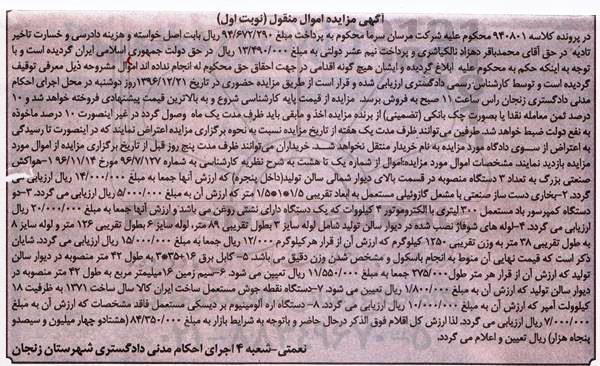 آگهی مزایده اموال منقول (نوبت اول)
در پرونده کلاسه ۹۴۰۸۰۱ محکوم علیه شرکت مرسان سرما محکوم به پرداخت مبلغ ۹۴/۶۷۲/۲۹۰ ریال بابت اصل خواسته و هزینه دادرسی و خسارت تاخیر
تادیه در حق آقای محمدباقر دهزاد نالکیاشری و پرداخت نیم عشر دولتی به مبلغ ۱۳/۴۹۰/۰۰۰ ریال در حق دولت جمهوری اسلامی ایران گردیده است و با
توجه به اینکه حکم به محکوم علیه ابلاغ گردیده و ایشان هیچ گونه اقدامی در جهت احقاق حق محکوم له انجام نداده اند اموال مشروحه ذیل معرفی توقیف
گردیده است و توسط کارشناس رسمی دادگستری ارزیابی شده و قرار است از طریق مزایده حضوری در تاریخ ۱۳۹۶/۱۲/۲۱ روز دوشنبه در محل اجرای احکام
مدنی دادگستری زنجان راس ساعت ۱۱ صبح به فروش برسد. مزایده از قیمت پایه کارشناسی شروع و به بالاترین قیمت پیشنهادی فروخته خواهد شد و ۱۰
درصد ثمن معامله نقدا یا بصورت چک بانکی (تضمینی) از برنده مزایده اخذ و مابقی باید ظرف مدت یک ماه وصول گردد در غیر اینصورت ۱۰ درصد ماخوذه
به نفع دولت ضبط خواهد شد. طرفین می‌توانند ظرف مدت یک هفته از تاریخ مزایده نسبت به نحوه برگزاری مزایده اعتراض نمایند که در اینصورت تا رسیدگی
به اعتراض از سوی دادگاه مورد مزایده به نام خریدار منتقل نخواهد شد. خریداران می‌توانند ظرف مدت پنج روز قبل از تاریخ برگزاری مزایده از اموال مورد
مزایده بازدید نمایند. مشخصات اموال مورد مزایده:اموال از شماره یک تا هشت به شرح نظریه کارشناسی به شماره ۹۶/۷/۱۲۷ مورخ ۹۶/۱۱/۱۴ ۱-هواکش
صنعتی بزرگ به تعداد ۳ دستگاه منصوبه در قسمت بالای دیوار شمالی سالن تولید(داخل پنجره) که ارزش آنها جمعا به مبلغ ۱۴/۰۰۰/۰۰۰ ریال ارزیابی می
گردد. ۲-بخاری دست ساز صنعتی با مشعل گازوئیلی مستعمل به ابعاد تقریبی ۱/۵*۱*۱/۵ متر که ارزش آن به مبلغ ۵/۰۰۰/۰۰۰ ریال ارزیابی می گردد. ۳-دو
دستگاه کمپرسور باد مستعمل ۳۰۰ لیتری با الکتروموتور ۳ کیلووات که یک دستگاه دارای نشتی روغن می باشد و ارزش آنها جمعا به مبلغ ۲۰/۰۰۰/۰۰۰ ریال
ارزیابی می گردد. ۴-لوله های شوفاژ نصب شده در دیوار سالن تولید شامل لوله سایز ۳ بطول تقریبی ۸۹ متر، لوله سایز ۶ بطول تقریبی ۱۲۶ متر و لوله سایز ۸
به طول تقریبی ۳۸ متر به وزن تقریبی ۱۲۵۰ کیلوگرم که ارزش آن از قرار هر کیلوگرم ۱۲/۰۰۰ ریال جمعا به مبلغ ۱۵/۰۰۰/۰۰۰ ریال ارزیابی می گردد. شایان
ذکر است که قیمت نهایی آن منوط به انجام باسکول و مشخص شدن وزن دقیق می باشد. ۵- کابل برق ۱۶+۳۵*۳ به طول ۴۲ متر منصوبه در دیوار سالن
تولید که ارزش آن از قرار هر متر طول ۲۷۵/۰۰۰ جمعا به مبلغ ۱۱/۵۵۰/۰۰۰ ریال تعیین می شود. ۶-سیم زمین ۱۶میلیمتر مربع به طول ۴۲ متر منصوبه در
دیوار سالن تولید که ارزش آن به مبلغ ۱/۸۰۰/۰۰۰ ریال تعیین می شود. ۷-دستگاه نقطه جوش مستعمل ساخت ایران کالا سال ساخت ۱۳۷۱ به ظرفیت ۱۸
کیلوولت آمپر که ارزش آن به مبلغ ۱۰/۰۰۰/۰۰۰ ریال ارزیابی می گردد. ۸- دستگاه اره آلومینیوم بر دیسکی مستعمل فاقد مشخصات که ارزش آن به مبلغ
۷/۰۰۰/۰۰۰ ریال ارزیابی می گردد. لذا ارزش کل اقلام فوق الذکر درحال حاضر و باتوجه به شرایط بازار به مبلغ ۸۴/۳۵۰/۰۰۰ (هشتادو چهار میلیون و سیصدو
پنجاه هزار) ریال تعیین و اعلام می گردد.
نعمتی-شعبه ۴ اجرای احکام مدنی دادگستری شهرستان زنجان